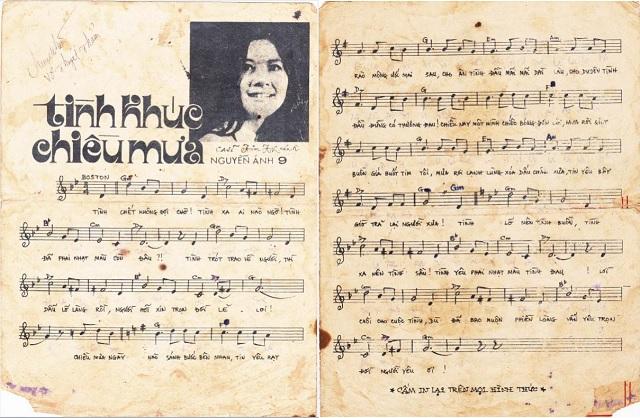 tình khúc
chiều mưa
NGUYỄN ÁNH 9
BOSTON Gm
TÌNH CHẾT KHÔNG ĐỢI CHỜ! TÌNH XA AI NÀO NGỜ! TÌNH
Cm
ĐÃ PHAI NHẠT MÀU CÒN ĐÂU?! TÌNH TRÓT TRAO VỀ NGƯỜI, THÌ
Cm G
DẪU LỠ LÀNG RỒI, NGƯỜI HỠI XIN TRỌN ĐỜI LẺ - LOI!
CHIỀU MƯA NGÀY NÀO SÁNH BƯỚC BÊN NHAU, TÌNH YÊU RẠT
G Am
RÀO MỘNG ƯỚC MAI SAU, CHO ÂN TÌNH ĐẦU MÃI MÃI DÀI LÂU, CHO DUYÊN TÌNH
G
ĐẦU ĐỪNG CÓ THƯƠNG ĐAU! CHIỀU NAY MỘT MÌNH CHIẾC BÓNG ĐƠN CÔI, MƯA RƠI GIỌT
Am
BUỒN GIÁ BUỐT TIM TÔI, MƯA RƠI LẠNH LÙNG XÓA DẤU CHÂN XƯA, TÌNH YÊU BÂY
G Gm
GIỜ TRẢ LẠI NGƯỜI XƯA! TÌNH LỠ NÊN TÌNH BUỒN, TÌNH
Cm
XA NÊN TÌNH SẦU! TÌNH YÊU PHAI NHẠT MÀU TÌNH ĐAU! LỜI
Cm
CUỐI CHO CUỘC TÌNH, DÙ ĐÃ BAO MUỘN PHIỀN LÒNG VẪN YÊU TRỌN
Gm
ĐỜI NGƯỜI YÊU ƠI!
* CẤM IN LẠI TRÊN MỌI HÌNH THỨC *